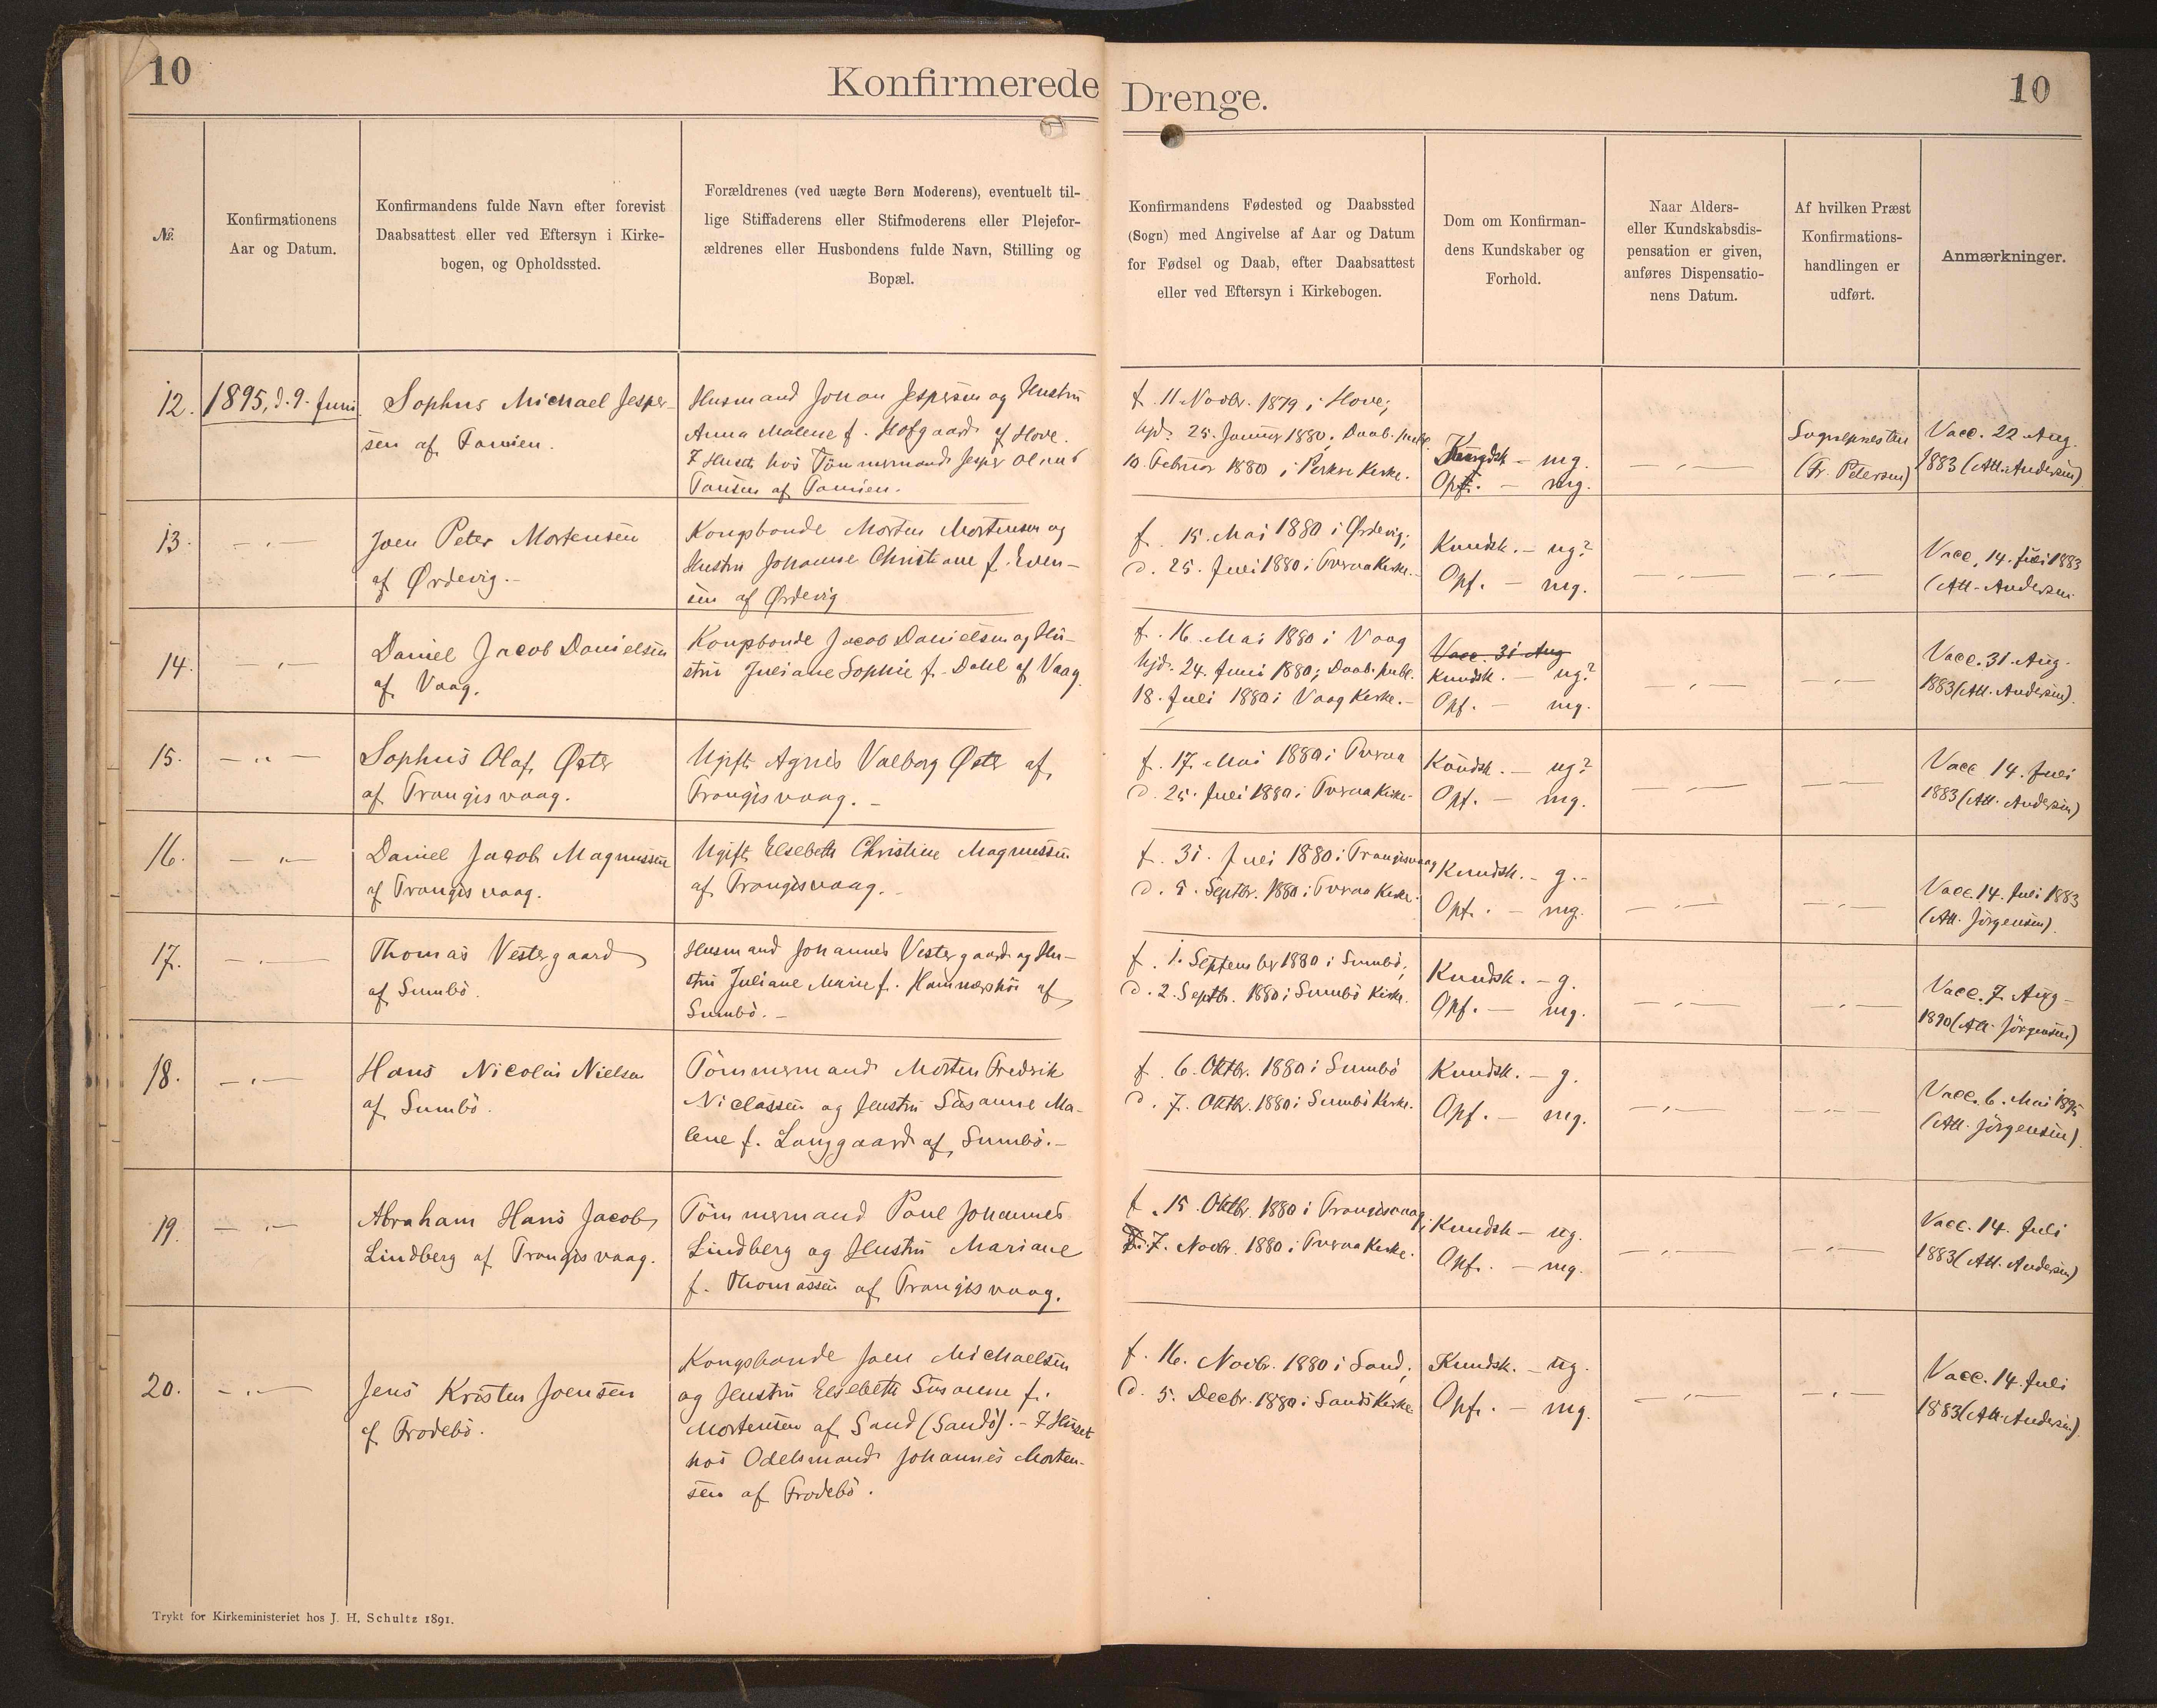 10
Konfirmerede
Drenge.
10
№.
Konfirmationens
Aar og Datum.
Konfirmandens fulde Navn efter forevist
Daabsattest eller ved Eftersyn i Kirke-
bogen, og Opholdssted.
Forældrenes (ved uægte Børn Moderens), eventuelt til-
lige Stiffaderens eller Stifmoderens eller Plejefor-
ældrenes eller Husbondens fulde Navn, Stilling og
Bopæl.
Konfirmandens Fødested og Daabssted
(Sogn) med Angivelse af Aar og Datum
for Fødsel og Daab, efter Daabsattest
eller ved Eftersyn i Kirkebogen.
Dom om Konfirman-
dens Kundskaber og
Forhold.
Naar Alders-
eller Kundskabsdis-
pensation er given,
anføres Dispensatio-
nens Datum.
Af hvilken Præst
Konfirmations-
handlingen er
udført.
Anmærkninger.
12.
1895, d. 9. Juni.
Sophus Michael Jesper-
sen af
Husmand Johan Jespersen og Hustru
Anna Malene f. Hofgaard af Hove.
I Huset hos Tömmermand Jesper
af
f. 11. Novbr. 1879 i Hove;
hjd. 25. Januar 1880. Daab. publ.
10. Februar 1880 i Kirke.
Kundsk. - mg.
Opf. - mg.
- „ -
Sognepræsten
(Fr. Petersen)
Vacc. 22 Aug.
1883 (Att. Andersen)
13.
- „ -
Joen Peter Mortensen
af Ørdevig. -
Kongsbonde Morten Mortensen og
Hustru Johanne Christiane f. Even-
sen af Ørdevig
f. 15. Mai 1880 i Ørdevig;
d. 25. Juli 1880 i Tveraa Kirke. -
Kundsk. - ug?
Opf. - mg.
- „ -
- „ -
Vacc. 14. Juli 1883
(Att. Andersen
14.
- „ -
Daniel Jacob Danielsen
af Vaag.
Kongsbonde Jacob Danielsen og Hu-
stru Juliane Sophie f. Dahl af Vaag.
f. 16. Mai 1880 i Vaag
hjd. 24. Juni 1880; Daab. publ.
18. Juli 1880 i Vaag Kirke. -
Vacc. 31 Aug
Kundsk. - ug?
Opf. - mg.
- „ -
- „ -
Vacc. 31. Aug.
1883 (Att. Andersen).
15.
- „ -
Sophus Olaf Øster
af Trangisvaag.
Ugift Agnes Valborg Øster af
Trangisvaag. -
f. 17. Mai 1880 i Tveraa
d. 25. Juli 1880 i Tveraa Kirke -
Kundsk. - ug?
Opf. - mg.
- „ -
- „ -
Vacc. 14. Juli
1883 (Att. Andersen)
16.
- „ -
Daniel Jacob Magnussen
af Trangisvaag.
Ugift Elsebeth Christine Magnussen
af Trangisvaag. -
f. 31. Juli 1880 i Trangisvaag
d. 5. Septbr. 1880 i Tveraa Kirke.
Kundsk. - g. -
Opf. - mg.
- „ -
- „ -
Vacc. 14. Juli 1883
(Att. Jörgensen).
17.
- „ -
Thomas Vestergaard
af Sumbö.
Husmand Johannes Vestergaard og Hu-
stru Juliane Marie f. Hammershöi af
Sumbö. -
f. 1. September 1880 i Sumbö;
d. 2. Septbr. 1880 i Sumbö Kirke.
Kundsk. - g.
Opf. - mg.
- „ -
- „ -
Vacc. 7. Aug -
1890 (Att. Jörgensen)
18.
- „ -
Hans Nicolai Nielsen
af Sumbö.
Tömmermand Morten Fredrik
Niclassen og Hustru Susanne Ma-
lene f. Langgaard af Sumbö. -
f. 6. Oktbr. 1880 i Sumbö
d. 7. Oktbr. 1880 i Sumbö Kirke.
Kundsk. - g.
Opf. - mg.
- „ -
- „ -
Vacc. 6. Mai 1895
(Att. Jörgensen).
19.
- „ -
Abraham Hans Jacob
Lindberg af Trangisvaag.
Tömmermand Poul Johannes
Lindberg og Hustru Mariane
f. Thomassen af Trangisvaag.
f. 15. Oktbr. 1880 i Trangisvaag;
d. 7. Novbr. 1880 i Tveraa Kirke.
Kundsk - ug.
Opf. - mg.
- „ -
- „ -
Vacc. 14. Juli
1883 (Att. Andersen)
20.
- „ -
Jens Kristen Joensen
af Frodebö.
Kongsbonde Joen Michaelsen
og Hustru Elsebeth Susanne f.
Mortensen af Sand (Sandö). - I Huset
hos Odelsmand Johannes Morten-
sen af Frodebö.
f. 16. Novbr. 1880 i Sand;
d. 5. Decbr. 1880 i Sands Kirke
Kundsk. - ug.
Opf. - mg.
- „ -
- „ -
Vacc. 14. Juli
1883 (Att. Andersen).
Trykt for Kirkeministeriet hos J. H. Schultz 1891.